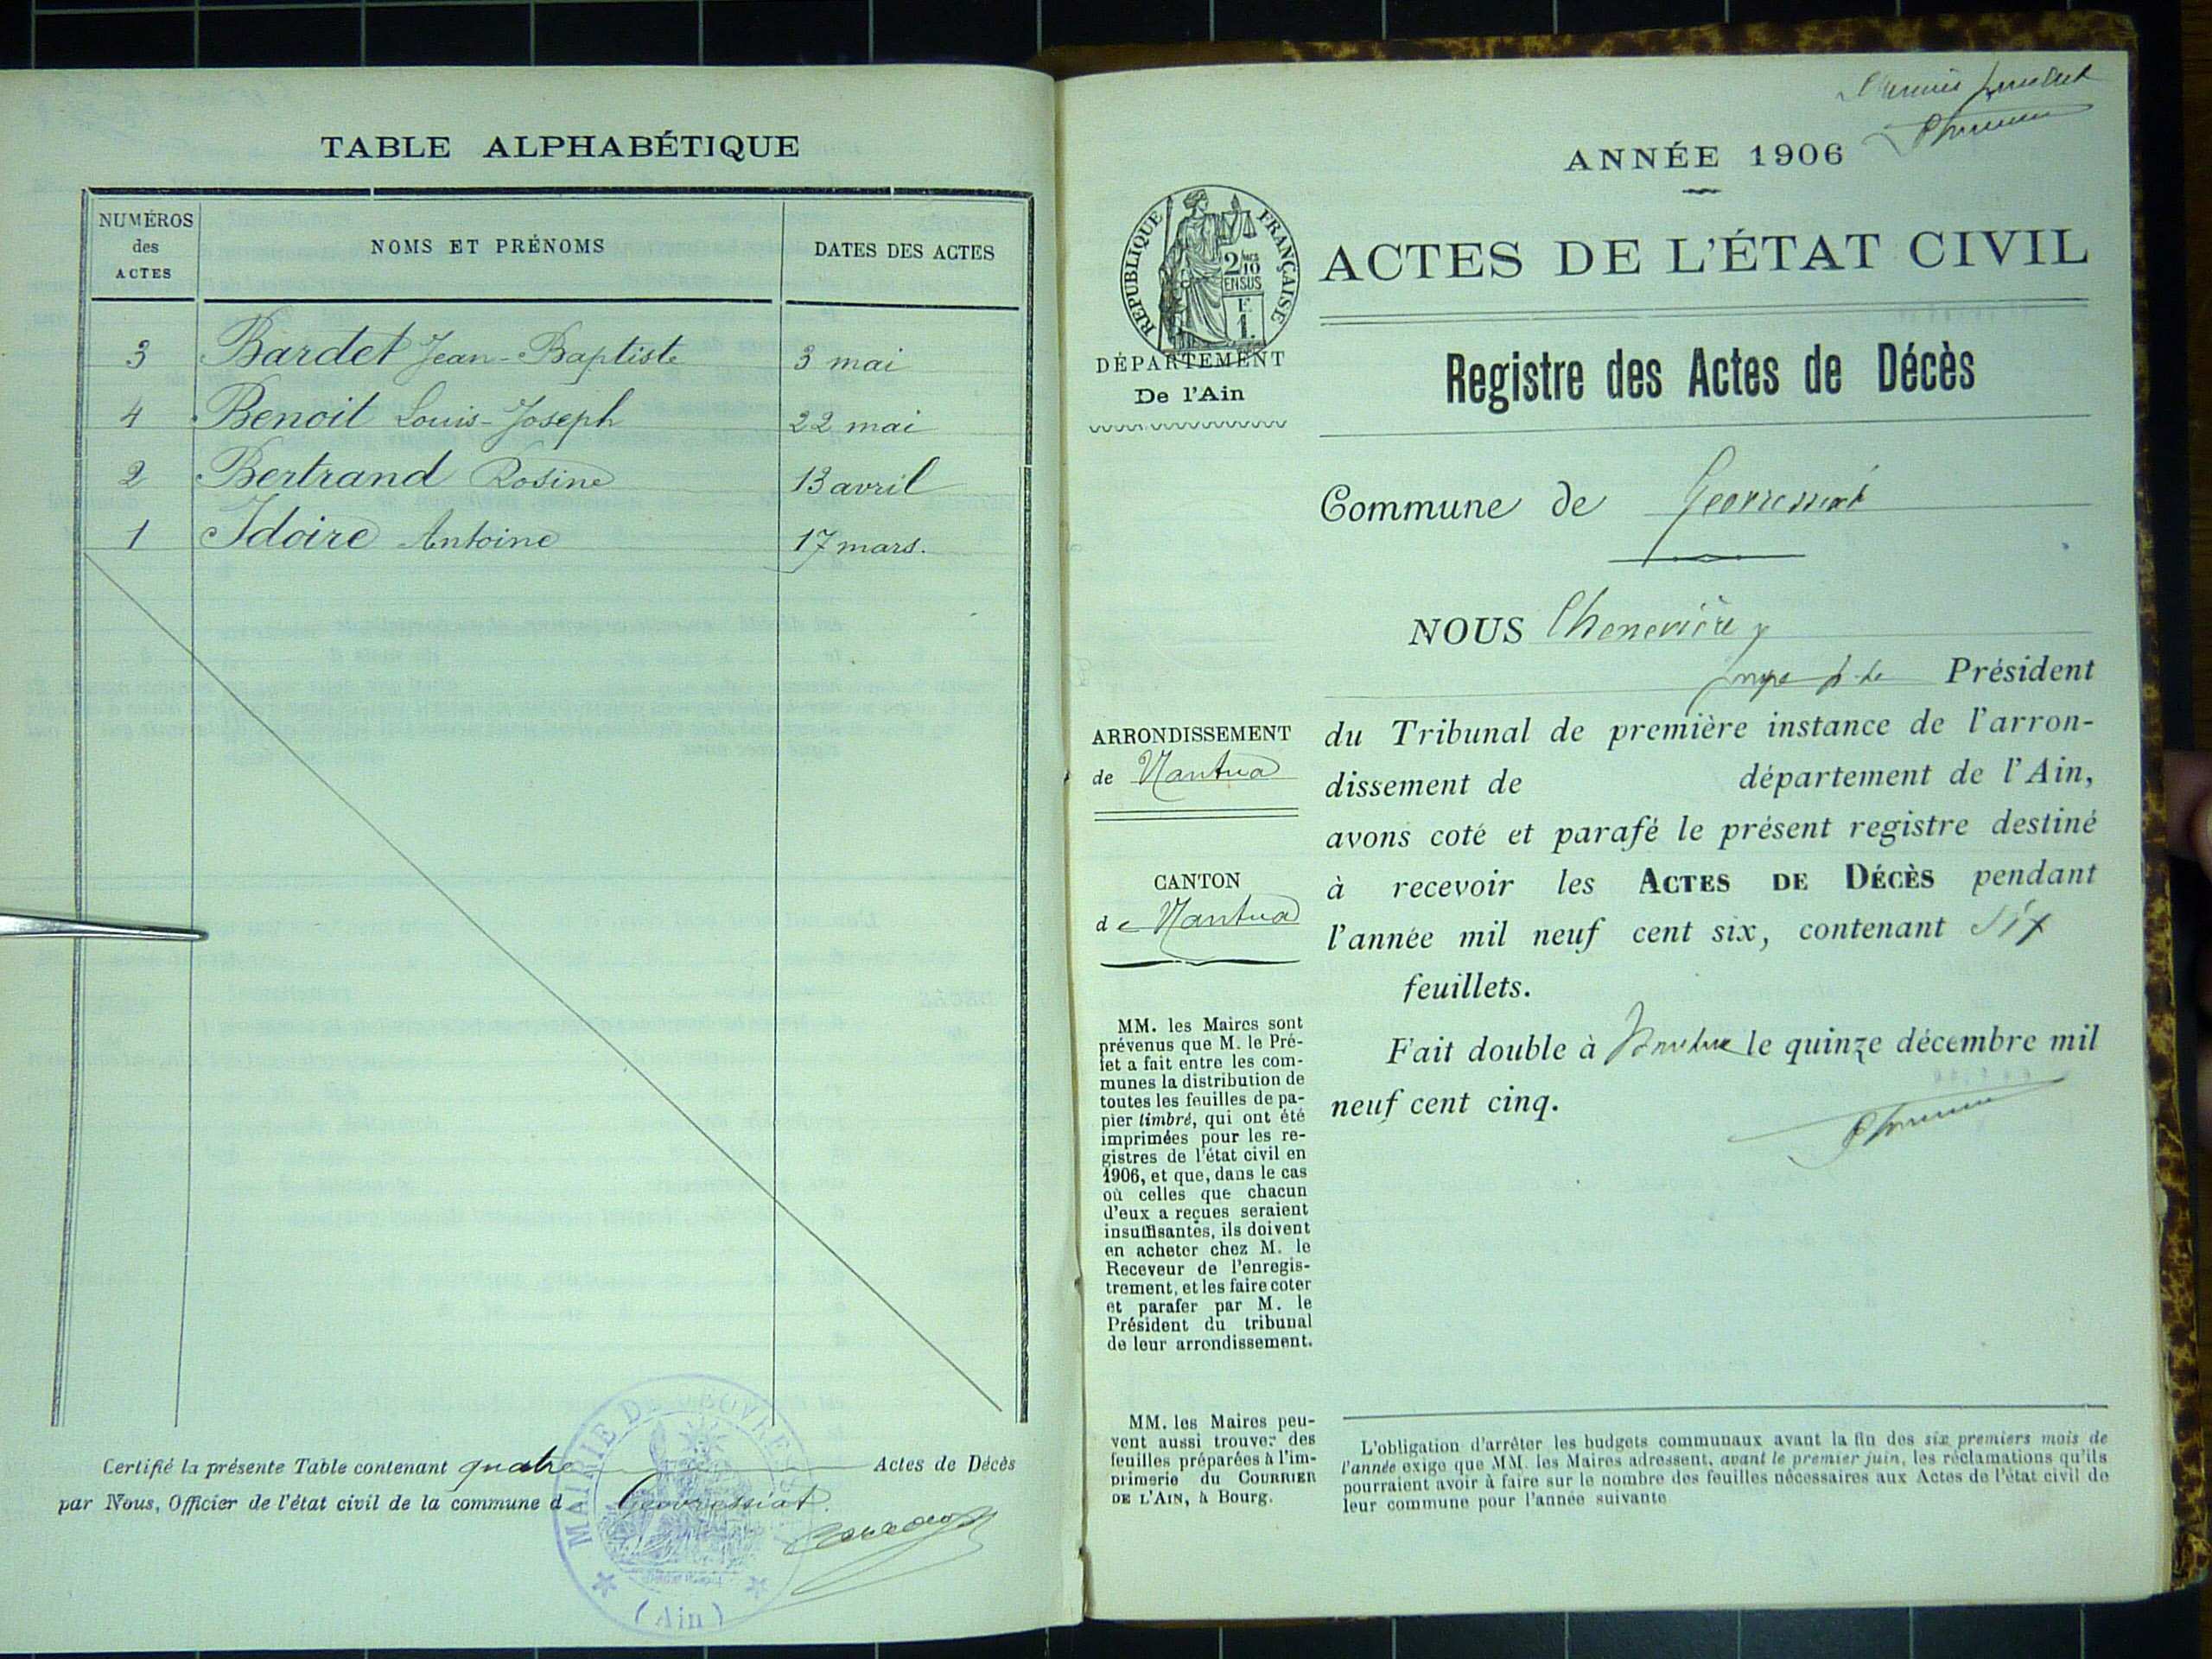 TABLE ALPHABÉTIQUE
NUMÉROS
des
ACTES
NOMS ET PRÉNOMS
DATES DES ACTES
3 Bardet Jean-Baptiste 3 mai
4 Benoit Louis-Joseph 22 mai
2 Bertrand Rosine 13 avril
1 Idoire Antoine 17 mars.
Certifié la présente Table contenant quatre Actes de Décès
par Nous, Officier de l'état civil de la commune d Geovressiat.
MAIRIE DE GEOVRESSIAT
(Ain)
ANNÉE 1906
RÉPUBLIQUE FRANÇAISE
2/10
EN SUS
F
1.
DÉPARTEMENT
De l'Ain
ACTES DE L'ÉTAT CIVIL
Registre des Actes de Décès
Commune de Geovressiat
NOUS Chenevière
Président
du Tribunal de première instance de l'arron-
dissement de département de l'Ain,
avons coté et parafé le présent registre destiné
à recevoir les ACTES DE DÉCÈS pendant
l'année mil neuf cent six, contenant six
feuillets.
Fait double à Nantua le quinze décembre mil
neuf cent cinq.
ARRONDISSEMENT
de Nantua
CANTON
de Nantua
MM. les Maires sont
prévenus que M. le Pré-
fet a fait entre les com-
munes la distribution de
toutes les feuilles de pa-
pier timbré, qui ont été
imprimées pour les re-
gistres de l'état civil en
1906, et que, dans le cas
où celles que chacun
d'eux a reçues seraient
insuffisantes, ils doivent
en acheter chez M. le
Receveur de l'enregis-
trement, et les faire coter
et parafer par M. le
Président du tribunal
de leur arrondissement.
MM. les Maires peu-
vent aussi trouver des
feuilles préparées à l'im-
primerie du COURRIER
DE L'AIN, à Bourg.
L'obligation d'arrêter les budgets communaux avant la fin des six premiers mois de
l'année exige que MM. les Maires adressent, avant le premier juin, les réclamations qu'ils
pourraient avoir à faire sur le nombre des feuilles nécessaires aux Actes de l'état civil de
leur commune pour l'année suivante